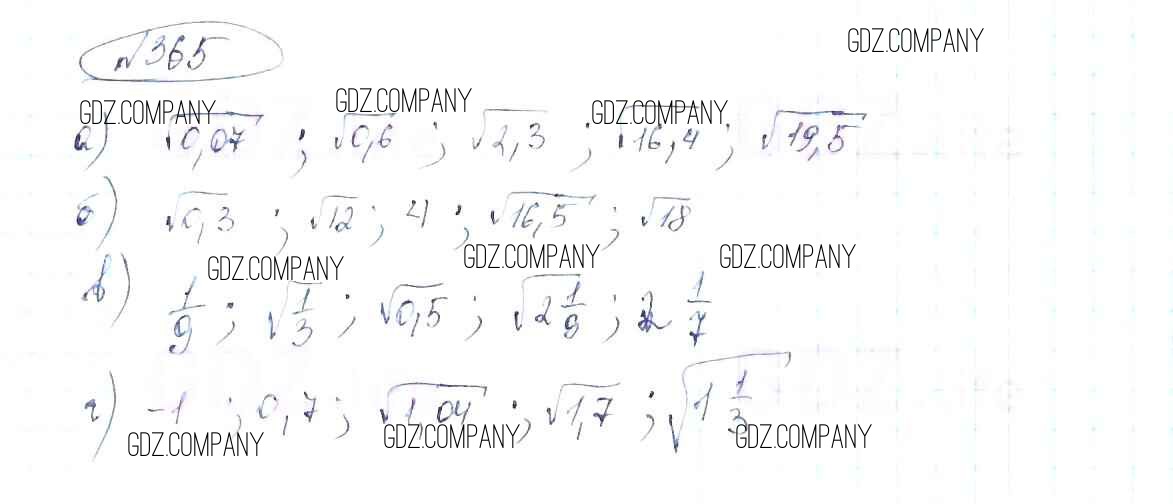 №365
GDZ.COMPANY
GDZ.COMPANY GDZ.COMPANY GDZ.COMPANY
а) √0,07 ; √0,6 ; √2,3 ; √16,4 ; √19,5
б) √0,3 ; √12 ; 4 ; √16,5 ; √18
GDZ.COMPANY GDZ.COMPANY GDZ.COMPANY
в) 1/9 ; √1/3 ; √0,5 ; √2 1/9 ; 2 1/7
г) -1 ; 0,7 ; √1,04 ; √1,7 ; √1 1/3
GDZ.COMPANY GDZ.COMPANY GDZ.COMPANY